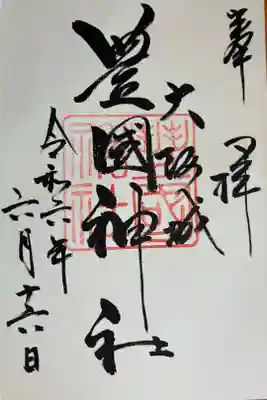 奉拝
大阪城
豊國神社
令和六年
六月十六日